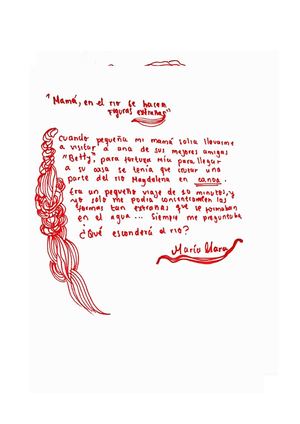 "Mamá, en el río se hacen
figuras extrañas"
Cuando pequeña mi mamá solía llevarme
a visitar a una de sus mejores amigas
"Betty", para fortuna mía para llegar
a su casa se tenía que cruzar una
parte del río Magdalena en canoa.
Era un pequeño viaje de 10 minutos, y
yo solo me podía concentrar en las
formas tan extrañas que se formaban
en el agua... siempre me preguntaba
¿Qué esconderá el río?
María Clara